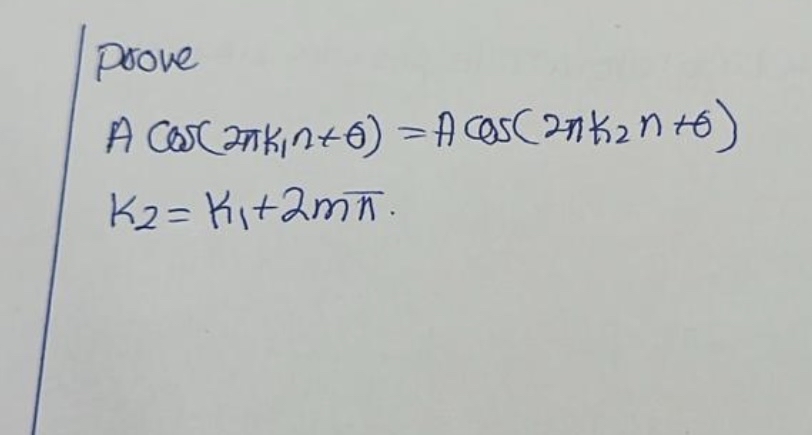 prove
A cos(2πk₁n+θ) = A cos(2πk₂n+θ)
k₂ = k₁+2mπ.